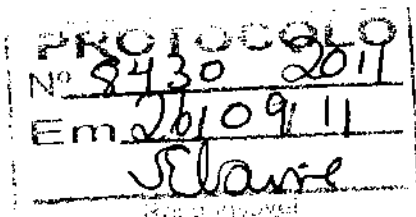 PROTOCOLO
Nº 8430 2011
Em 26/09/11
Elaine